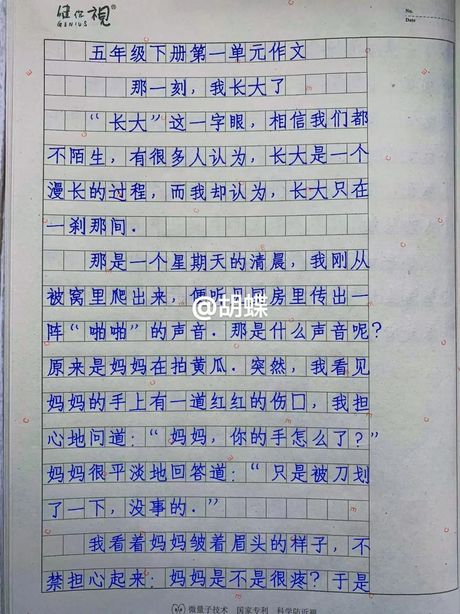 健仁視®
GENIUS
No.
Date
五年级下册第一单元作文
那一刻，我长大了
“长大”这一字眼，相信我们都
不陌生，有很多人认为，长大是一个
漫长的过程，而我却认为，长大只在
一刹那间．
那是一个星期天的清晨，我刚从
被窝里爬出来，便听见厨房里传出一
@胡蝶
阵“啪啪”的声音．那是什么声音呢？
原来是妈妈在拍黄瓜．突然，我看见
妈妈的手上有一道红红的伤口，我担
心地问道：“妈妈，你的手怎么了？”
妈妈很平淡地回答道：“只是被刀划
了一下，没事的．”
我看着妈妈皱着眉头的样子，不
禁担心起来：妈妈是不是很疼？于是
微量子技术 国家专利 科学防近视